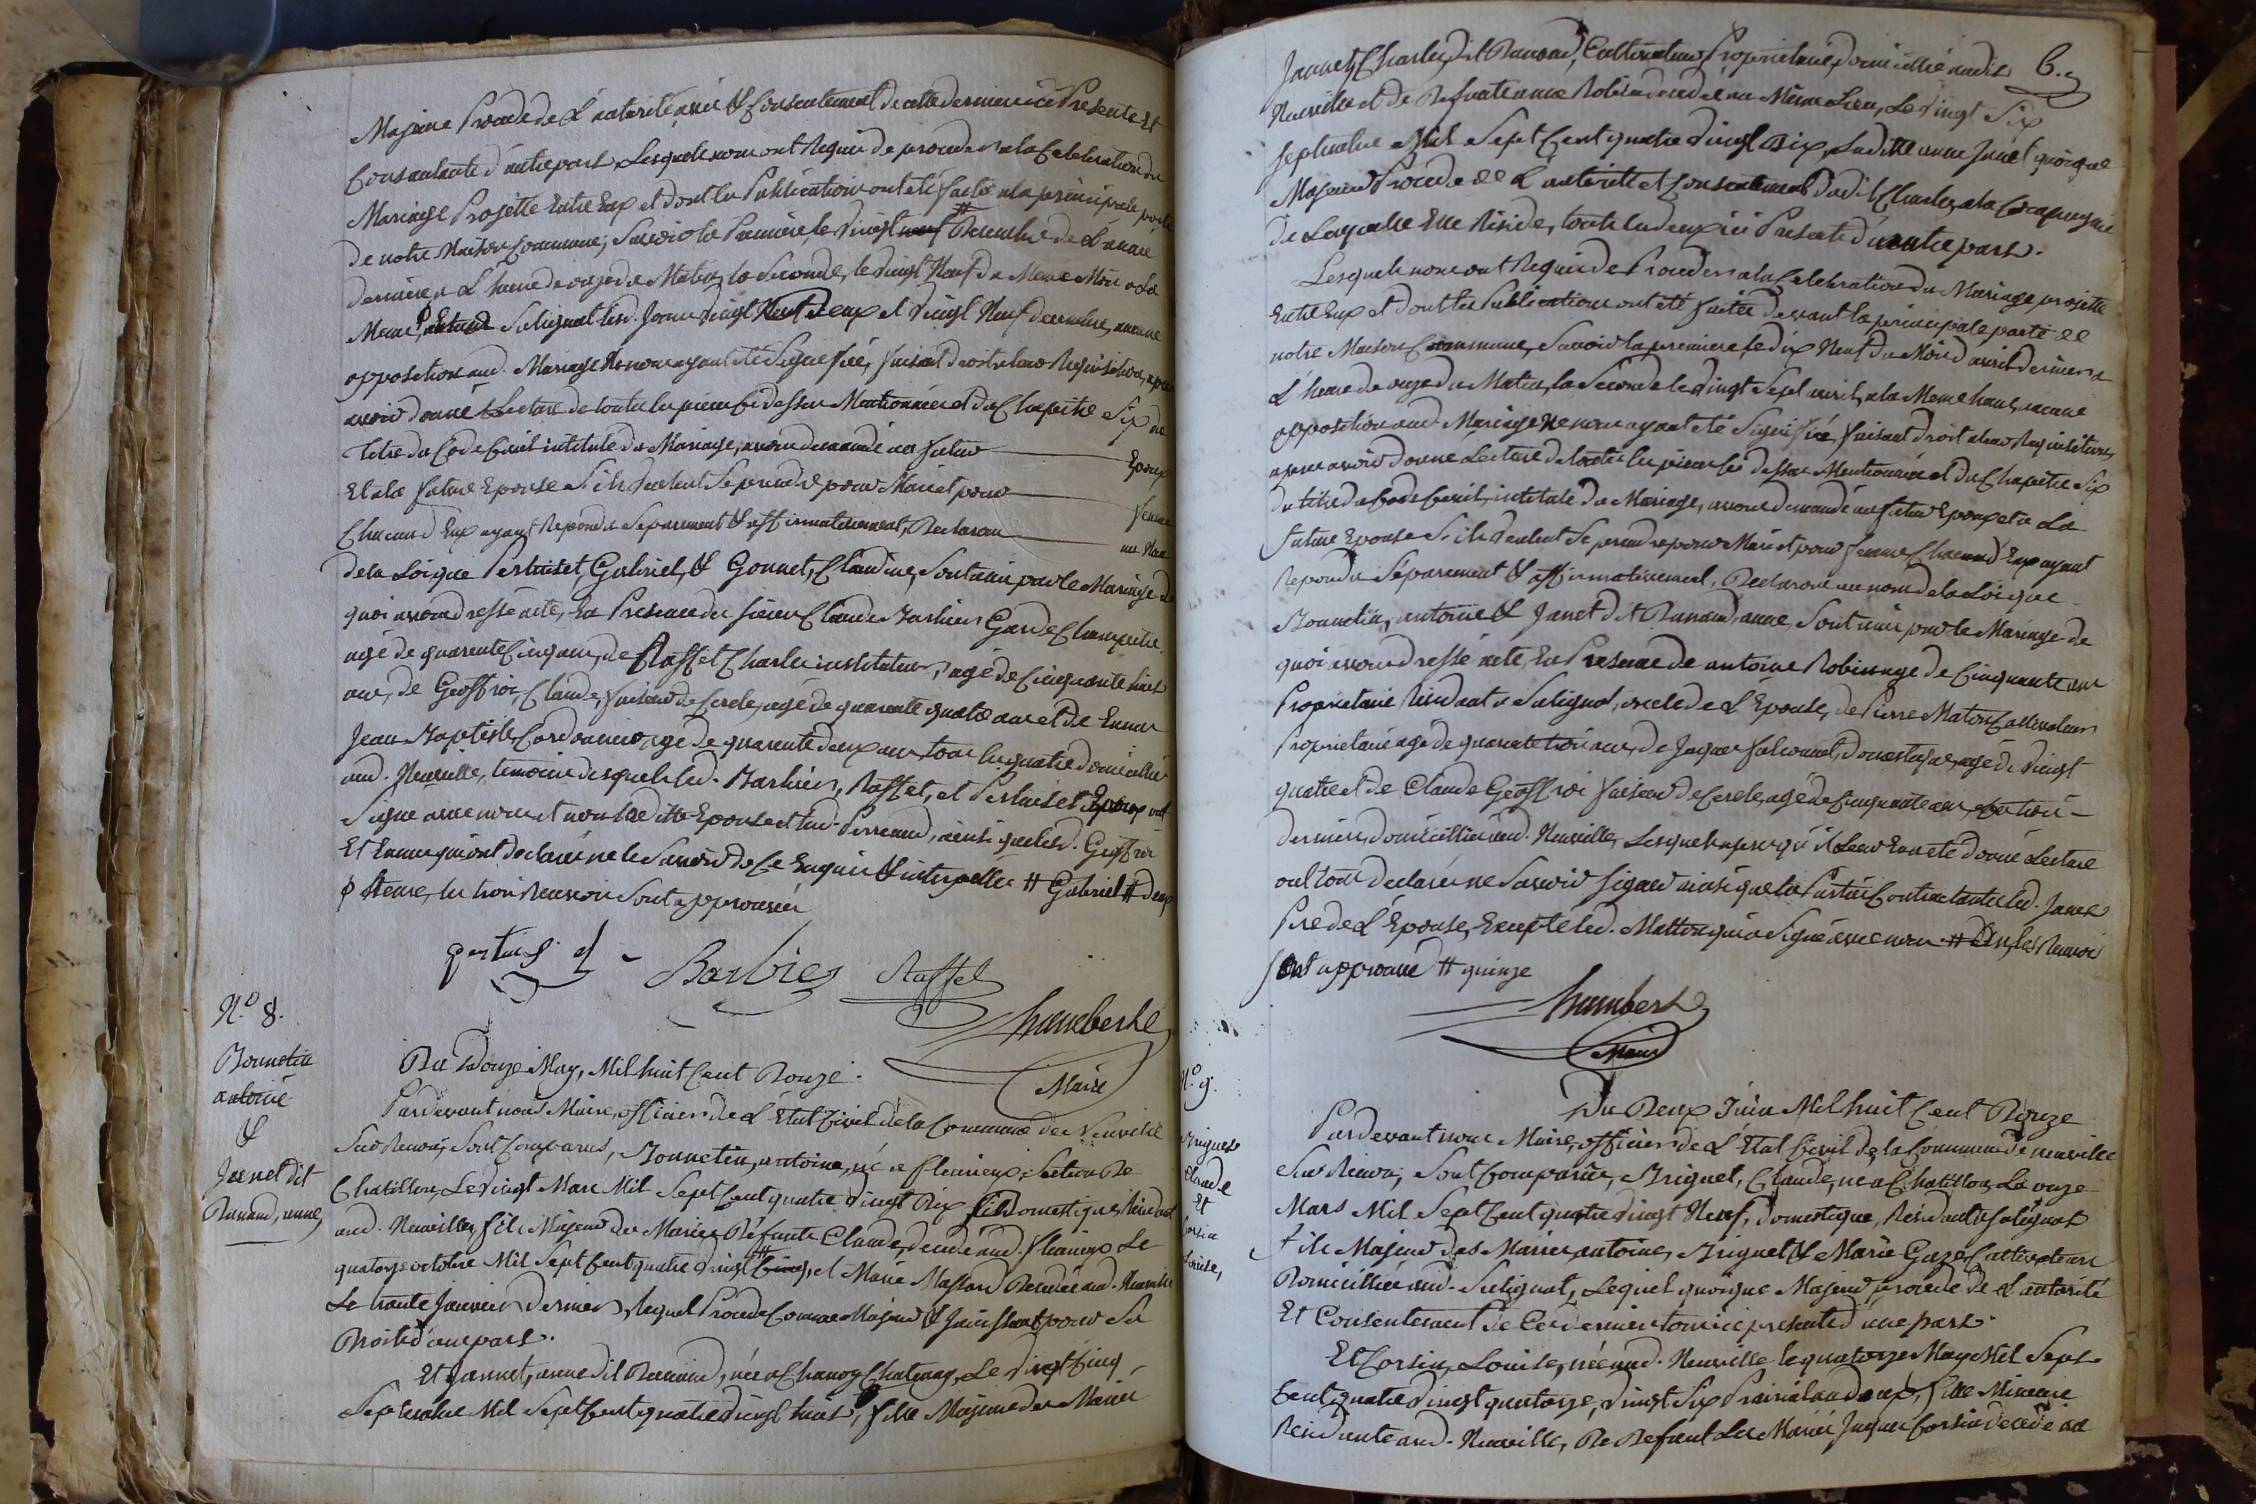 Majeure Procede de L'autorité avis & Consentement de cette derniere ici Presente et
Consentante d'autre part, Lesquels nous ont Requis de proceder a la Celebration du
Mariage Projetté Entre Eux et dont les Publications ont été faites a la principale porte
de notre Maison Commune, Savoir la Premiere, le Vingt # Decembre de L'année
derniere a L'heure de onze du Matin, la Seconde, le Vingt Neuf du Meme Mois a La
Meme, Salignat lesd. Jours Vingt deux et Vingt Neuf decembre, aucune
opposition aud. Mariage Ne nous ayant été Signiffiée, faisant droit a leur Requisition, apres
avoir donné Lecture de toutes les pieces Ci dessus Mentionnées et du Chapitre Six du
Titre du Code Civil intitulé du Mariage, avons demandé au futur Epoux
Et a la future Epouse S'ils Veulent Se prendre pour Mari et pour femme
Chacun d'Eux ayant Repondu Separement & affirmativement, Declarons au Nom
de la Loi que Pertuiset, Gabriel, & Gonnet, Claudine, Sont unis par le Mariage de
quoi avons dressé acte, En Presence des Sieurs Claude Barbier Garde Champetre
agé de quarente Cinq ans, de Raffet Charles instituteur, agé de Cinquante huit
ans, de Geoffroi, Claude, faiseur de Cercle, agé de quarente quatre ans et de
Jean Baptiste, Cordonnier agé de quarente deux ans, tous les quatre domiciliés
aud. Neuville, temoins desquels led. Barbier, Raffet, et Pertuiset Epoux ont
Signé avec nous et non la ditte Epouse et lad. Perreaud, ainsi que led. Geoffroi
Et qui ont déclaré ne le Savoir de Ce Enquis & interpellés # Gabriel # deux
φ heure, les trois Renvois Sont approuvés
pertuis et Barbier Raffet
Chambert
Maire
N.o 8.
Bonnetin
antoine
&
Janet dit
Renaud, anne,
Du Douze May, Mil huit Cent Douze.
Pardevant nous Maire, officier de L'Etat Civil de la Commune de Neuville
Sur Renon, Sont Comparus, Bonnetin, antoine, né a fleurieux, Section De
Chatillon, Le Vingt Mars Mil Sept Cent quatre Vingt Dix, Domestique, Residant
aud. Neuville, fils Majeur des Mariés Défunts Claude, decedé aud. fleurieux Le
quatorze octobre Mil Sept Cent quatre Vingt #, et Marie Massard Decedée aud. Neuville
Le trente Janvier dernier, lequel Procede Comme Majeur & Jouissant pour Ses
Droits d'une part.
Et Jannet, anne dit Renaud, née a Chanoz Chatenay, Le Vingt Cinq
Septembre Mil Sept Cent quatre Vingt huit, fille Majeure des Mariés
6.
Jannet, Charles, dit Renaud, Cultivateur Proprietaire, domicillié audit
Neuville et de Defunte anne Robin decedée au Même Lieu, Le Vingt Six
Septembre Mil Sept Cent quatre Vingt Dix, Laditte anne Janet quoique
Majeure Procede de L'autorité et Consentement Dudit Charles, a la Compagnie
de Laquelle Elle Reside, touts les deux ici Presents d'autre part.
Lesquels nous ont Requis de Proceder a la Celebration du Mariage projetté
Entre Eux et dont les Publications ont été faites devant la principale porte de
notre Maison Commune, Savoir la premiere le dix Neuf du Mois d'avril dernier a
L'heure de onze du Matin, la Seconde le Vingt Sept avril, a la Meme heure, aucune
opposition aud. Mariage Ne nous ayant été Signiffiée, faisant droit a leur Requisition,
apres avoir donné Lecture de toutes les pieces Ci dessus Mentionnées et du Chapitre Six
du titre du Code Civil, intitulé du Mariage, avons demandé au futur Epoux et a La
future Epouse S'ils Veulent Se prendre pour Mari et pour femme Chacun d'Eux ayant
Repondu Séparement & affirmativement, Declarons au nom de la Loi que
Bonnetin, antoine & Janet dit Renaud, anne, Sont unis par le Mariage de
quoi avons dressé acte, En Presence de antoine Robin agé de Cinquante ans
Proprietaire Residant a Salignat, oncle de L'Epouse, de Pierre Maton Cultivateur
Proprietaire agé de quarente trois ans, de Jaques falconnet, domestique, agé de Vingt
quatre et de Claude Geoffroi faiseur de Cercle, agé de Cinquante ans, Ces trois
derniers domicilliés aud. Neuville, Lesquels apres qu'il Leur En a été donné Lecture
ont tous déclaré ne Savoir Signer ainsi que les Parties Contractantes led. Janet
Pere de L'Epouse, Excepté led. Matton qui a Signé avec nous # Les Renvois
Sont approuvés # quinze
Chambert
Maire
N.o 9.
Briguet
Claude
Et
Corsin
Louise,
Du Deux Juin Mil huit Cent Douze
Pardevant nous Maire, officier de L'Etat Civil de la Commune de neuville
Sur Renon, Sont Comparus, Briguet, Claude, né a Chatillon, Le onze
Mars Mil Sept Cent quatre Vingt Neuf, Domestique, Residant a Salignat
fils Majeur des Mariés antoine, Briguet & Marie Guze Cultivateurs
Domicilliés aud. Salignat, Lequel quoique Majeur procede de L'autorité
Et Consentement de Ces derniers tous ici presents d'une part.
Et Corsin, Louise, née aud. Neuville le quatorze May Mil Sept
Cent quatre Vingt quatorze, Vingt Six Prairial an deux, fille Mineure
Residante aud. Neuville, De Defunt Les Mariés Jaques Corsin decedé au